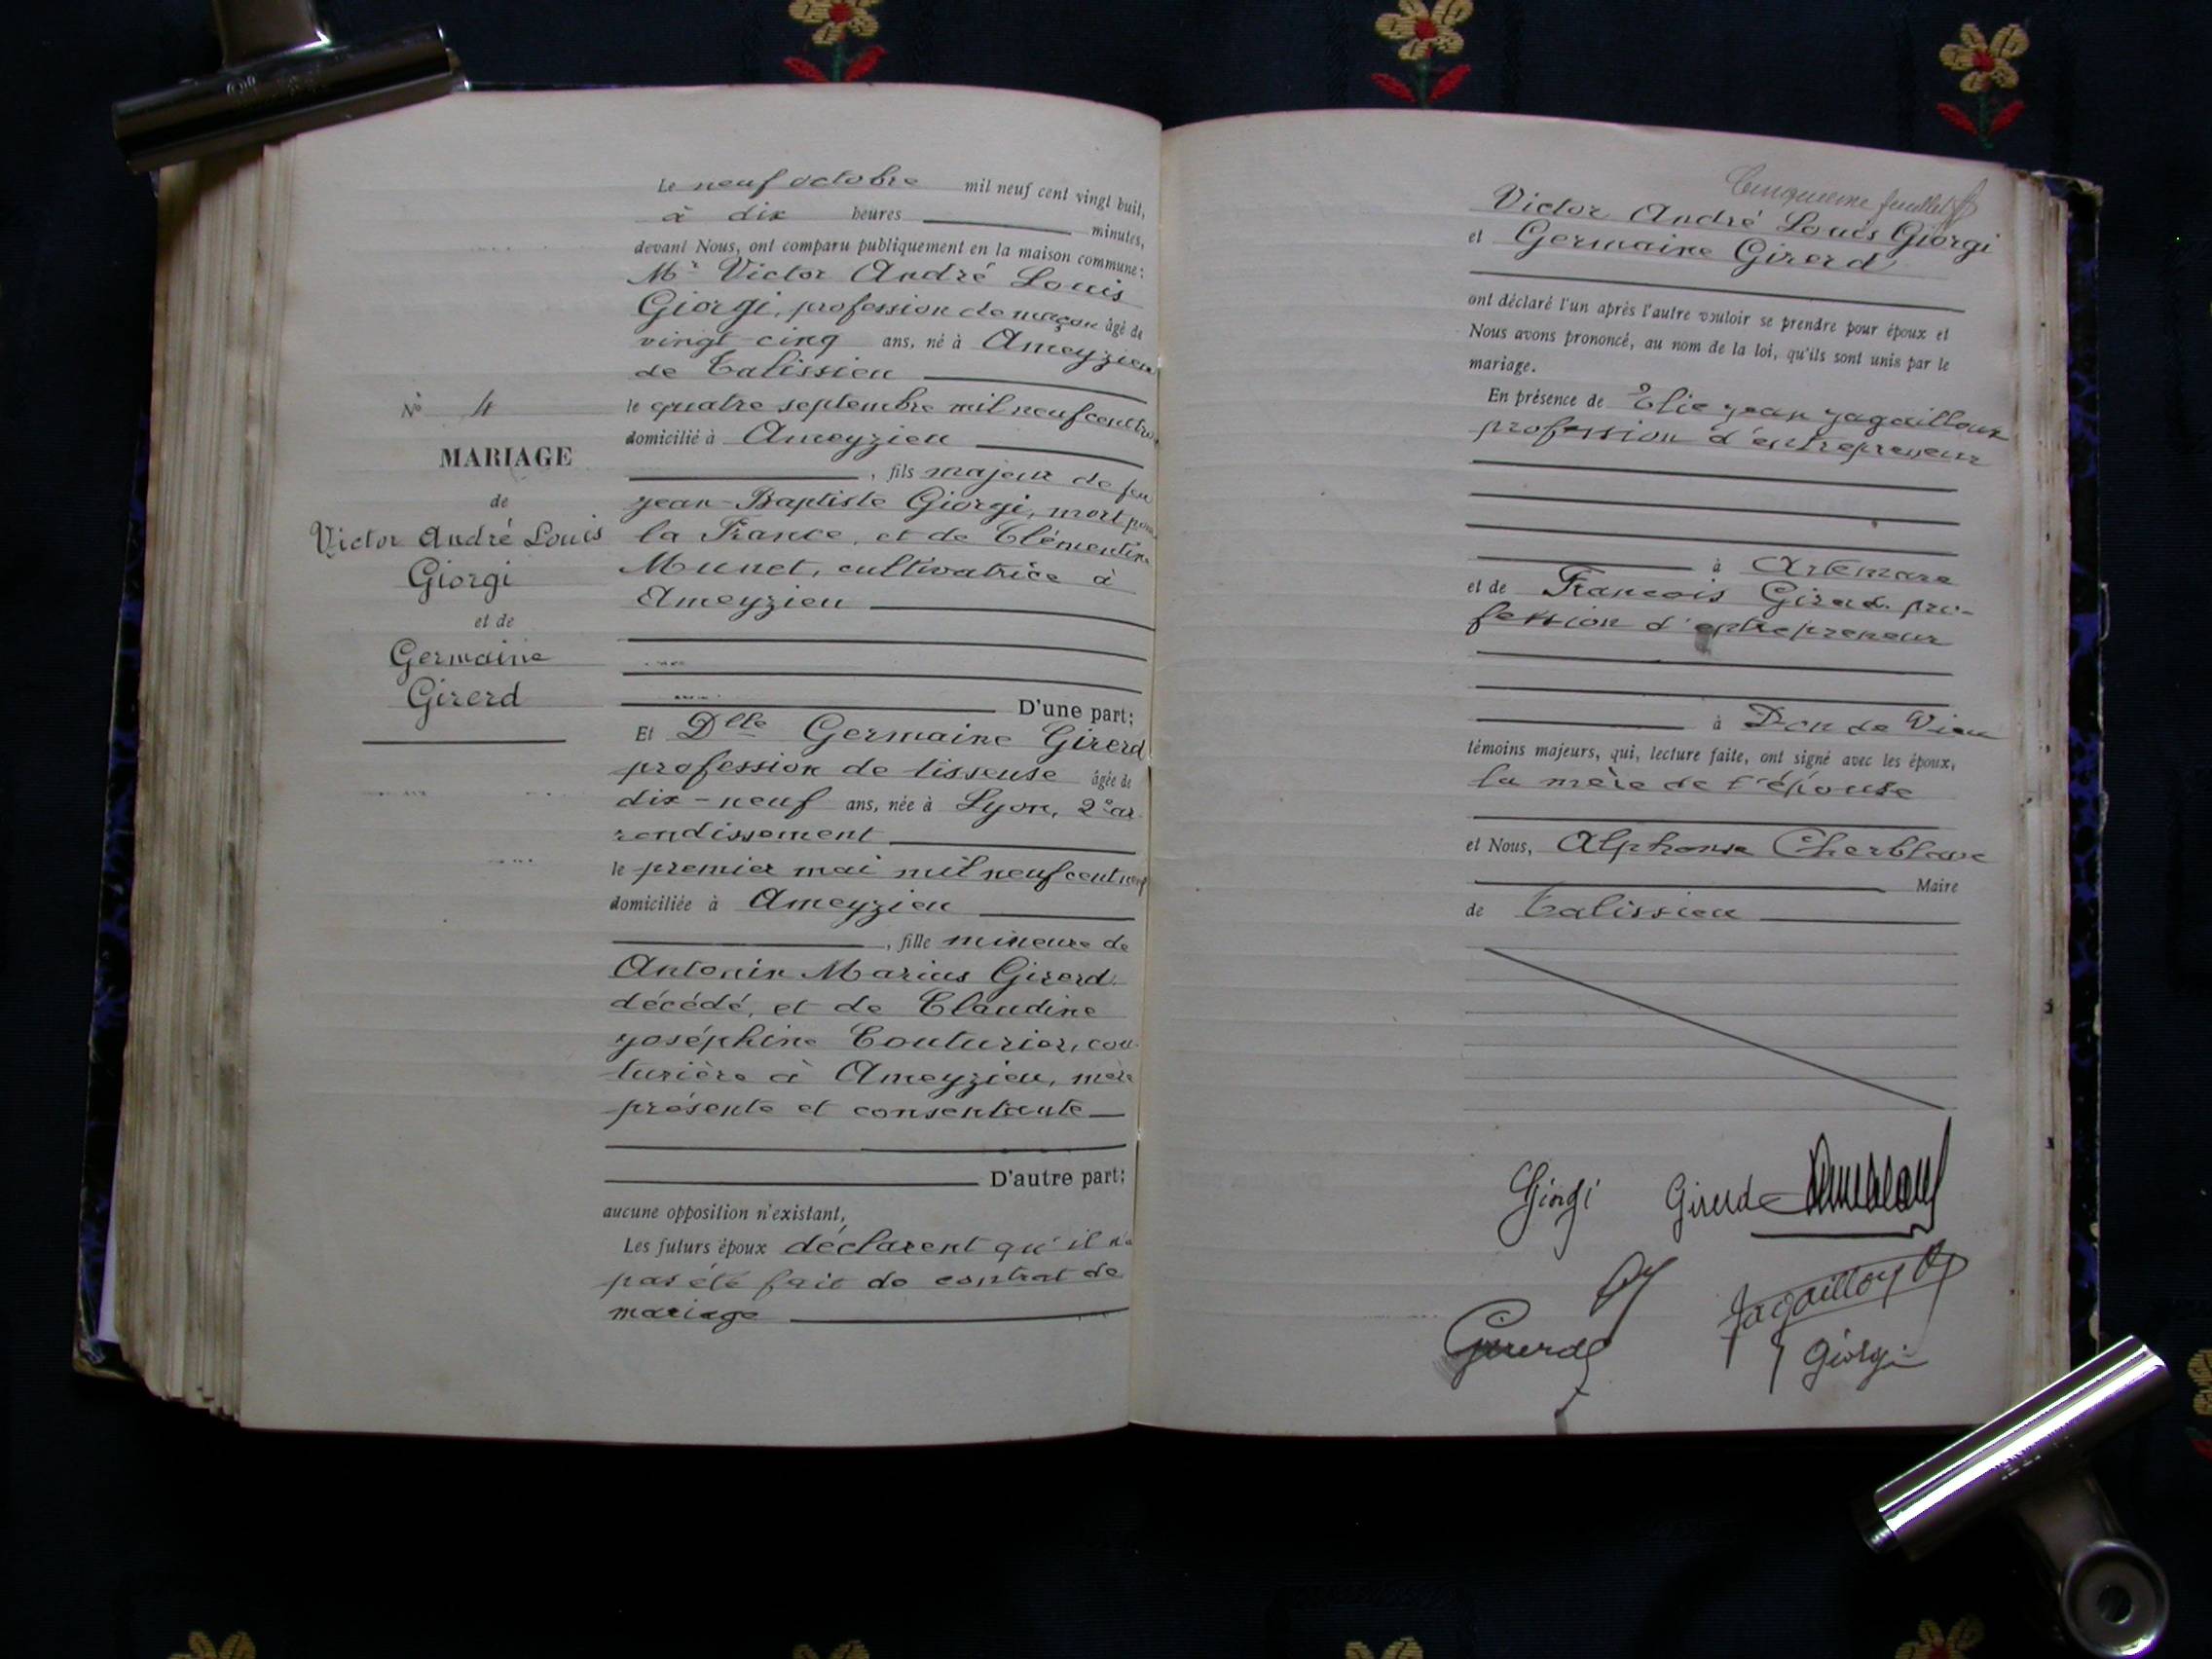 Le neuf octobre mil neuf cent vingt huit,
à dix heures minutes,
devant Nous, ont comparu publiquement en la maison commune:
Mr Victor André Louis
Giorgi, profession de maçon âgé de
vingt-cinq ans, né à Ameyzieu
de Talissieu
le quatre septembre mil neuf cent trois
domicilié à Ameyzieu
, fils majeur de feu
Jean-Baptiste Giorgi, mort pour
la France, et de Clémentine
Munet, cultivatrice à
Ameyzieu
D'une part;
Et Dlle Germaine Girerd
profession de tisseuse âgée de
dix-neuf ans, née à Lyon, 2e ar
rondissement
le premier mai mil neuf cent neuf
domiciliée à Ameyzieu
, fille mineure de
Antonin Marius Girerd
décédé, et de Claudine
Joséphine Couturier, cou-
turière à Ameyzieu, mère
présente et consentante
D'autre part;
aucune opposition n'existant,
Les futurs époux déclarent qu'il n'a
pas été fait de contrat de
mariage
No 4
MARIAGE
de
Victor André Louis
Giorgi
et de
Germaine
Girerd
Cinquième feuillet
Victor André Louis Giorgi
et Germaine Girerd
ont déclaré l'un après l'autre vouloir se prendre pour époux et
Nous avons prononcé, au nom de la loi, qu'ils sont unis par le
mariage.
En présence de Elie Jean Jagailloux
profession d'entrepreneur
à Artemare
et de François Girerd pro-
fession d'entrepreneur
à Don de Vieu
témoins majeurs, qui, lecture faite, ont signé avec les époux,
la mère de l'épouse
et Nous, Alphonse
Maire
de Talissieu
Giorgi Girerd
Girerd
Giorgi